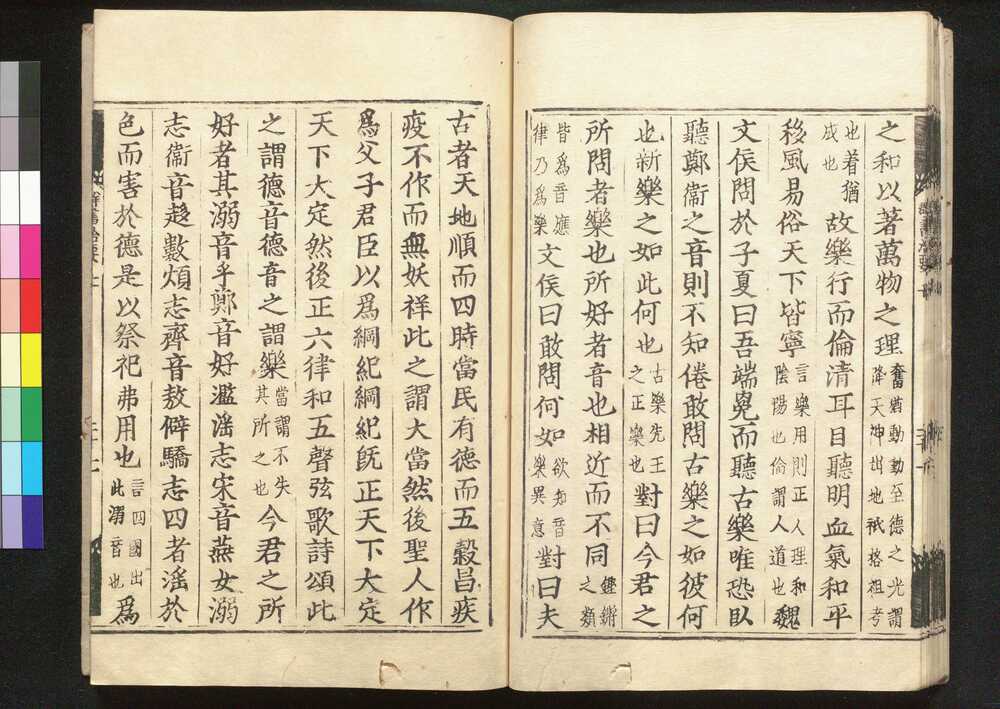 之和以著萬物之理奮猶動動至德之光謂降天神出地祇格祖考
也着猶成也故樂行而倫清耳目聽明血氣和平
移風易俗天下皆寧言樂用則正人理和陰陽也倫謂人道也魏
文侯問於子夏曰吾端冕而聽古樂唯恐臥
聽鄭衛之音則不知倦敢問古樂之如彼何
也新樂之如此何也古樂先王之正樂也對曰今君之
所問者樂也所好者音也相近而不同鏗鏘之類
皆爲音應律乃爲樂文侯曰敢問何如欲知音樂異意對曰夫
古者天地順而四時當民有德而五穀昌疾
疫不作而無妖祥此之謂大當然後聖人作
爲父子君臣以爲綱紀綱紀旣正天下大定
天下大定然後正六律和五聲弦歌詩頌此
之謂德音德音之謂樂當謂不失其所之也今君之所
好者其溺音乎鄭音好濫滛志宋音燕女溺
志衞音趍數煩志齊音敖僻驕志四者滛於
色而害於德是以祭祀弗用也言四國出此溺音也爲